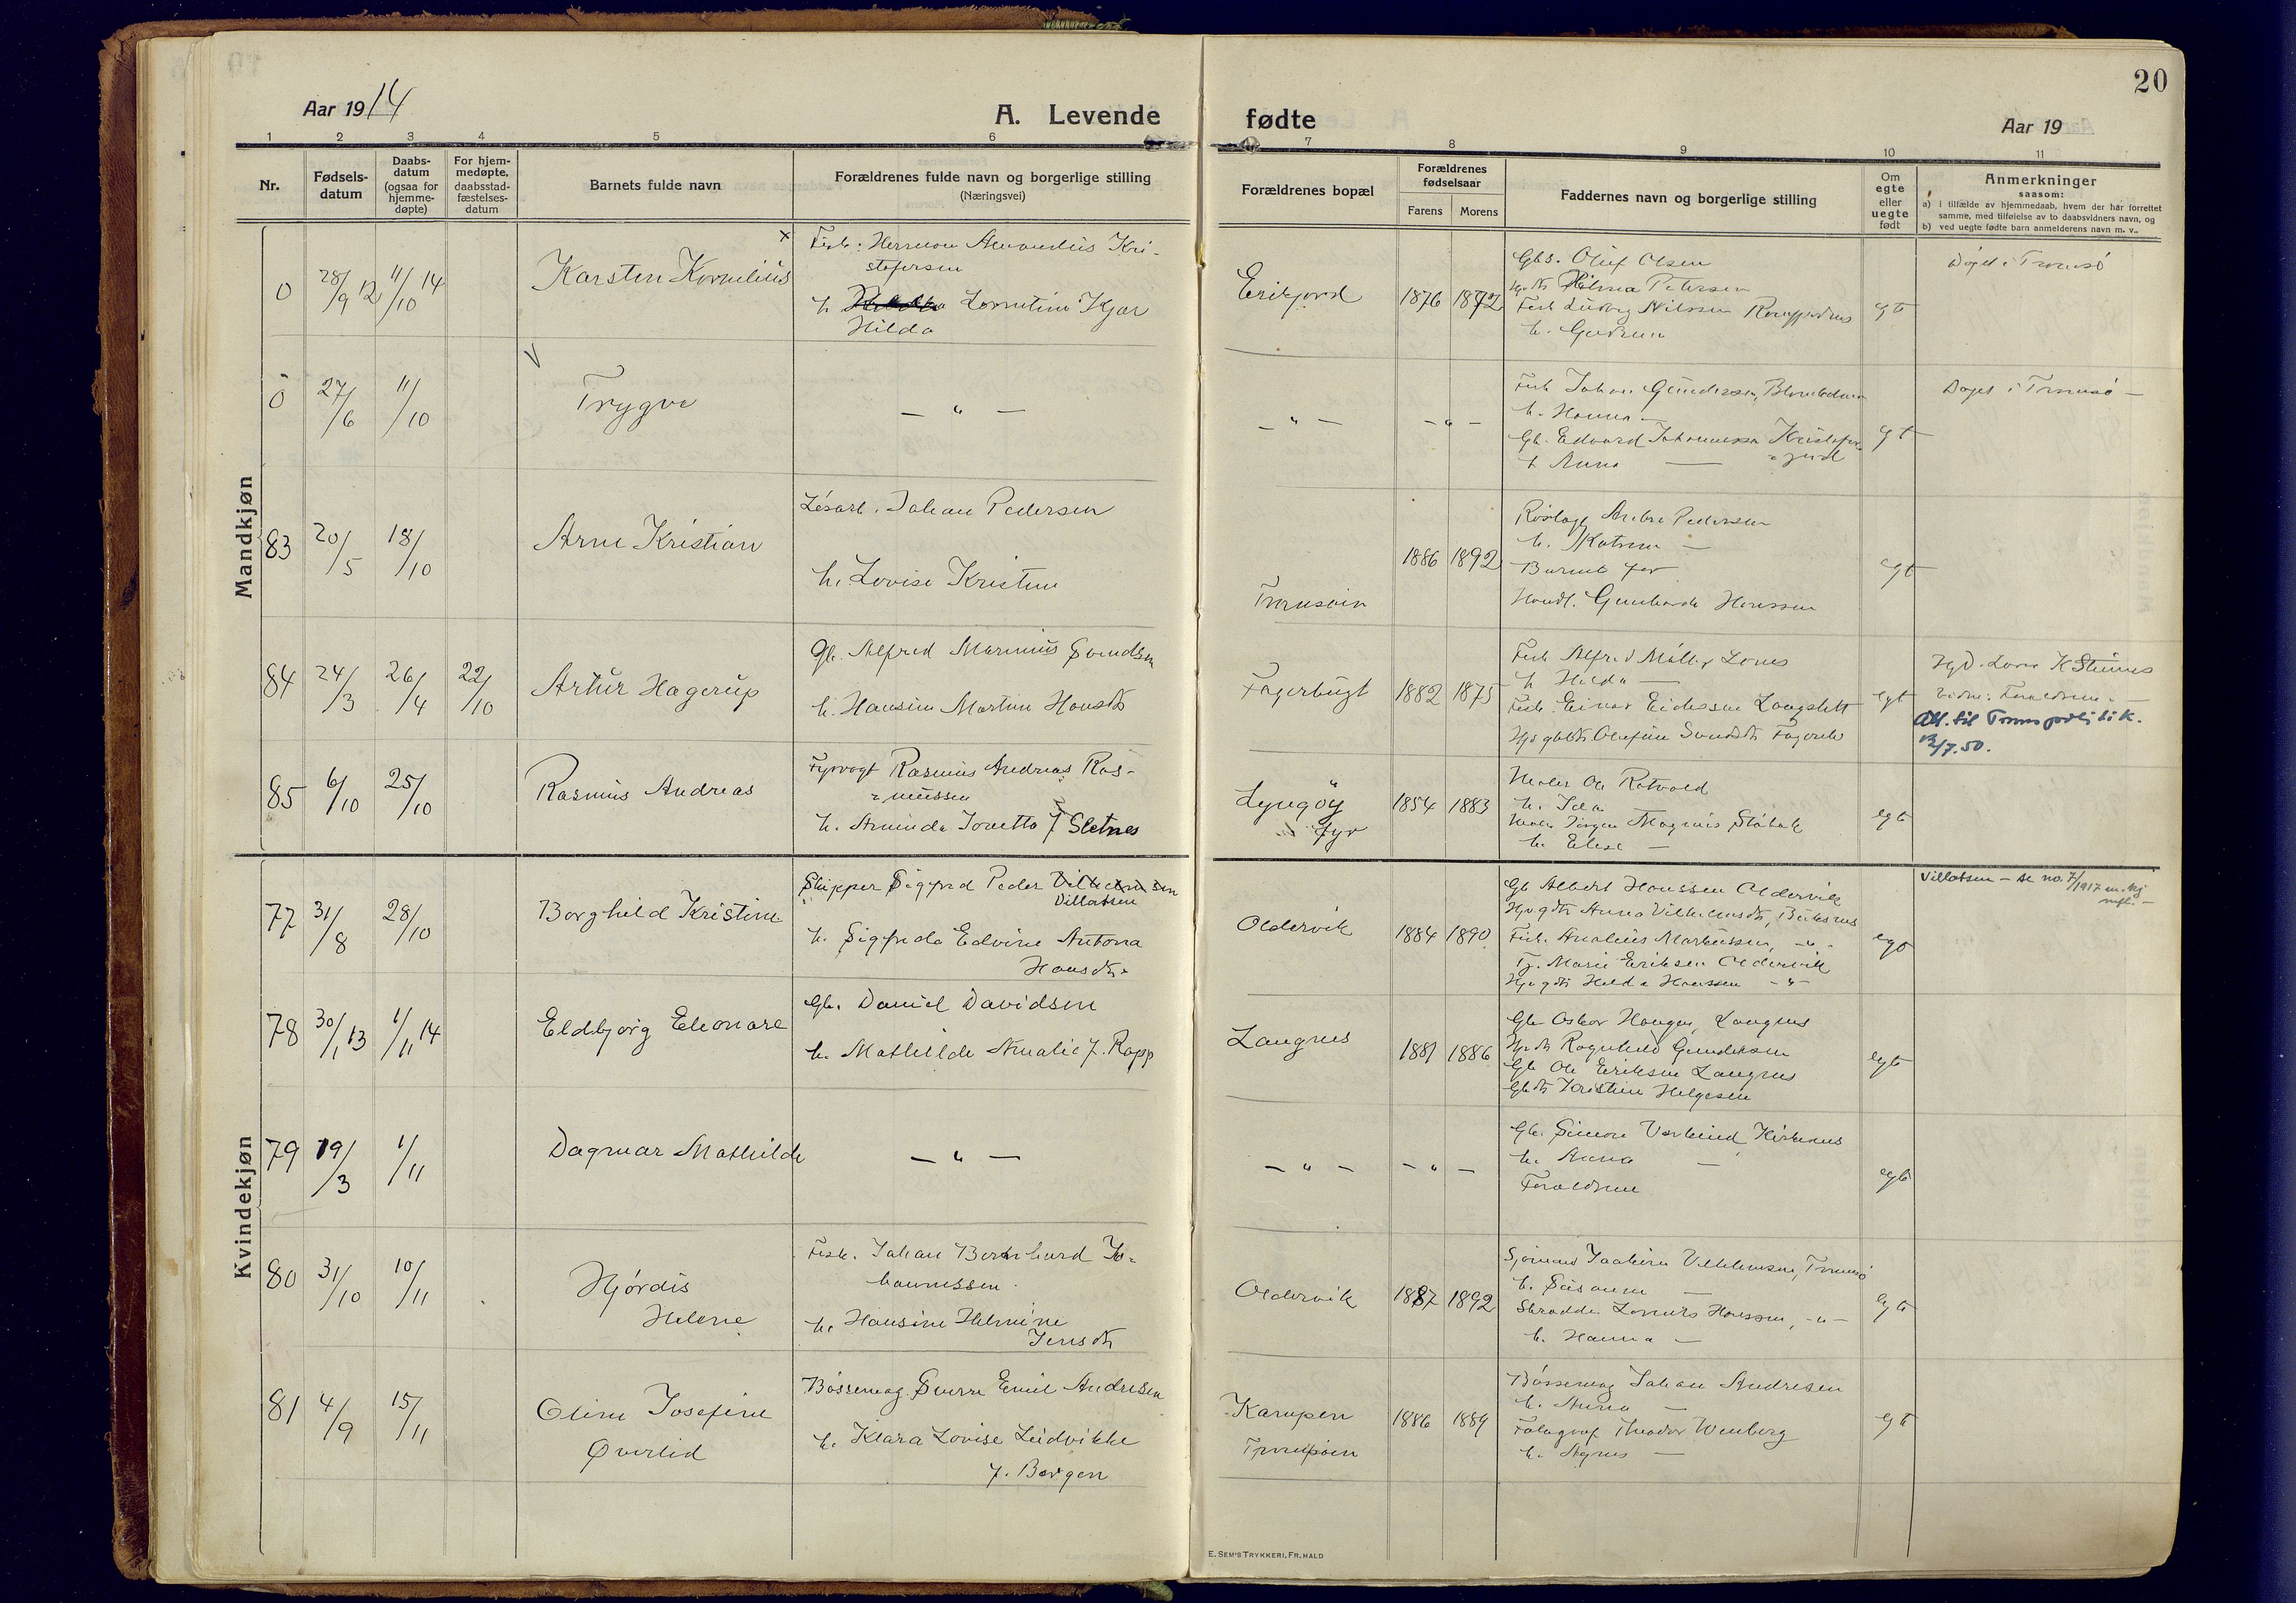 20
Aar 1914
A. Levende
fødte
Aar 19
1 2 3 4 5 6 7 8 9 10 11
Nr.
Fødsels-
datum
Daabs-
datum
(ogsaa for
hjemme-
døpte)
For hjem-
medøpte,
daabsstad-
fæstelses-
datum
Barnets fulde navn
Forældrenes fulde navn og borgerlige stilling
(Næringsvei)
Forældrenes bopæl
Forældrenes
fødselsaar
Farens Morens
Faddernes navn og borgerlige stilling
Om
egte
eller
uegte
født
Anmerkninger
saasom:
a) i tilfælde av hjemmedaab, hvem der har forrettet
samme, med tilføielse av to daabsvidners navn, og
b) ved uegte fødte barn anmelderens navn m. v..
Mandkjøn
0 28/9 12 11/10 14 Karsten Kornelius
Kri-
stofersen
h. Lorentine Kjær
Hilda
1876 1872
Gbs. Oluf Olsen
Petersen
Fisk Ludvig Nilssen
h. Gudrun
egt
Døpt i Tromsø
0 27/6 11/10 Trygve
— " —
— " —
— " —
Fisk Johan Gundersen,
h. Hanna —
Gb. Edvard Johannessen Kristofer-
h Anna —
egt
Døpt i Tromsø —
83 20/5 18/10 Arne Kristian
Løsarb. Johan Pedersen
h. Lovise Kristine
Tromsøen
1886 1892
Pedersen
h. Katrine —
Barnets far
Hanssen
egt
84 24/3 26/4 22/10 Artur Hagerup
Gb. Alfred Marinius Svendsen
h. Hansine Martine Hansdtr
Fagerbugt
1882 1875
Fisk Alfred
h Hilda —
Fisk. Einar Eriksen Langslett
egt
Vidne: Forældrene —
Att. til Troms politik.
12/7.50.
85 6/10 25/10 Rasmus Andreas
Fyrvogt Rasmus Andreas Ras-
mussen
h. Aminda Jonetta f Sletnes
Lyngøy
fyr
1854 1883
Ole Rotvold
h. Ida
Jørgen Magnus
h. Elise —
egt
Kvindekjøn
77 31/8 28/10 Borghild Kristine
Skipper Sigfred Peder Vilhelmsen
Villatsen
h. Sigfrida Edvine Antona
Hansdtr
Oldervik
1884 1890
Gb Albert Hanssen Oldervik
Anna Vilhelmsdtr,
Fisk. Analius Markussen, — " —
Marie Eriksen Oldervik
Hilda Hanssen — " —
egt
Villatsen — se no. 7/1917 m.kj
78 30/1 13 1/11 14 Eldbjørg Eleonore
Gb. Daniel Davidsen
h. Mathilde Amalie f. Rapp
Langnes
1881 1886
Gb Oskar Haugen, Langnes
Ragnhild Gundersen
Gb Ole Eriksen Langnes
Gbdtr Kristine Helgesen
egt
79 19/3 1/11 Dagmar Mathilde
— " —
— " —
— " —
Gb. Simon Kirknes
h. Anna —
Forældrene
egt
80 31/10 10/11 Hjørdis
Helene
Fisk. Johan Bernhard Jo-
hannessen.
h. Hansine Helmine
Jensdtr
Oldervik
1887 1892
Sjømand Joakim Vilhelmsen, Tromsø
h. Susanne —
Skrædder Hanssen, — " —
h. Hanna —
egt
81 4/9 15/11 Oline Josefine
Øverlid
Bøssemag. Sverre Emil Andresen
h. Klara Lovise Ludvikke
f. Borgen
Karupen
Tromsøen
1886 1889
Bøssemag Johan Andresen
h. Anna —
Fotograf Theodor Wenberg
h. Agnes —
egt
E. SEM'S TRYKKERI, FR.HALD